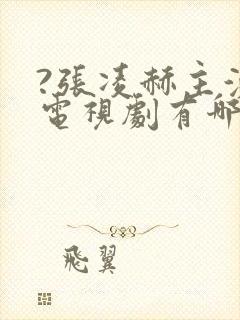 ?張凌赫主演
電視劇有哪
飛翼